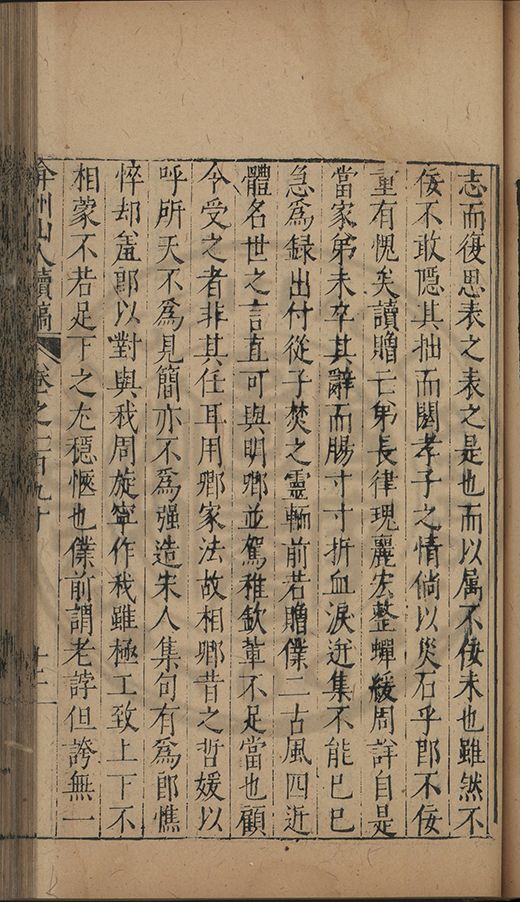 志而復思表之表之是也而以属不佞未也雖然不
佞不敢隱其拙而閼孝子之情倘以災石乎即不佞
重有愧矣讀贈亡弟長律瑰麗宏整蟬緩周詳自是
當家弟未卒其辭而腸寸寸折血淚迸集不能已已
急爲録出付從子焚之靈輀前若贈僕二古風四近
體名世之言直可與明卿並駕稚欽輩不足當也顧
令受之者非其任耳用卿家法故相卿昔之哲媛以
呼所天不爲見簡亦不爲强造宋人集句有爲郎憔
悴却羞郎以對與我周旋寧作我雖極工致上下不
相蒙不若足下之尤穩愜也僕前謂老誖但誇無一
弇州山人續稿 卷之一百九十 十二